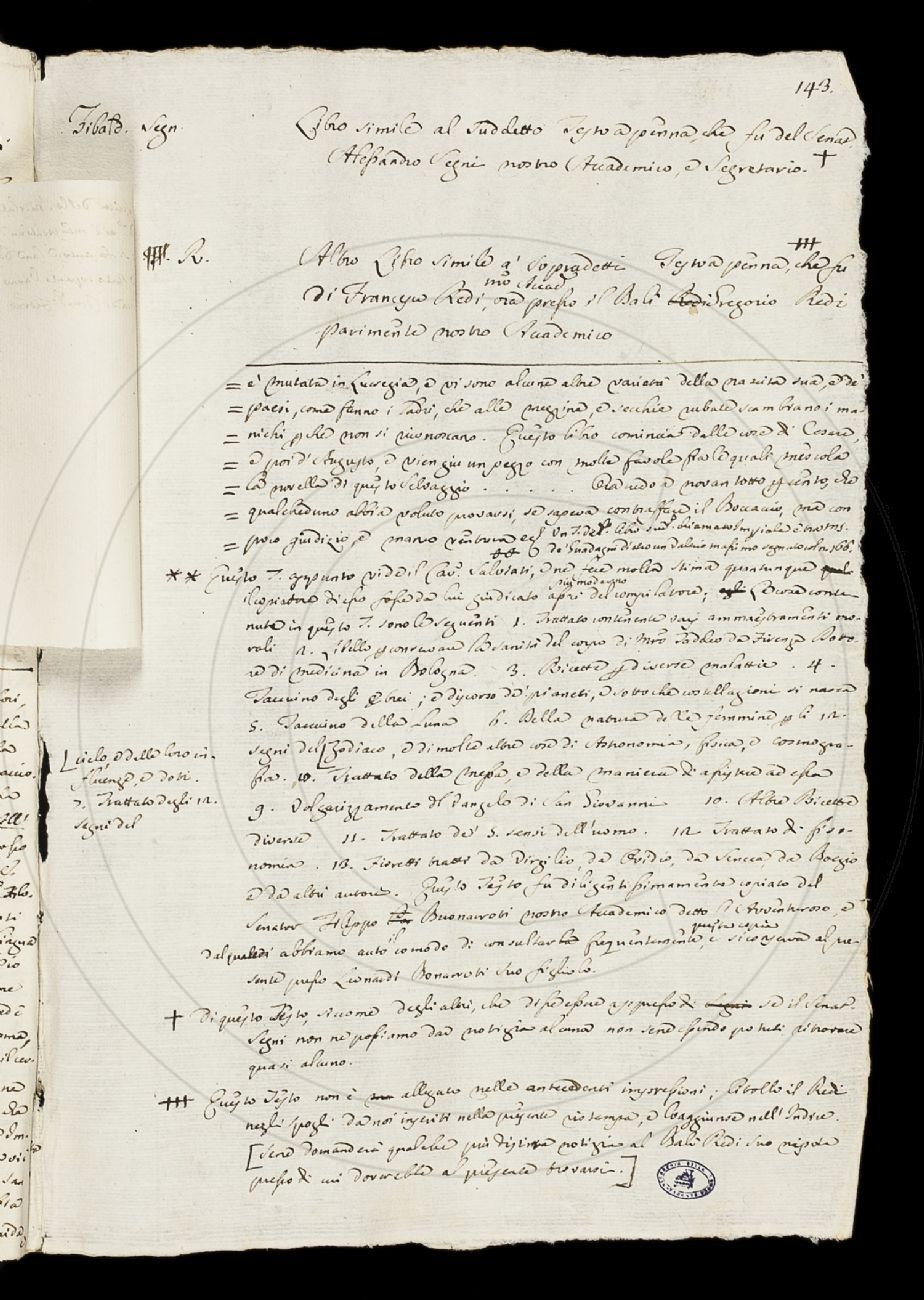 143.
Zibald. Segn. Libro simile al suddetto Testo a penna, che fu del Senat.
Alessandro Segni nostro Accademico, e Segretario. †
R. Altro Libro simile a' sopradetti Testo a penna, che fu
nro Accad.
di Francesco Redi, ora presso il Balì Gregorio Redi
parimente nostro Accademico
= è mutata in Lucrezia, e vi sono alcune altre varietà della nascita sua, e de'
= paesi, come fanno i ladri, che alle mezzine, e secchie rubate scambiano i ma-
= nichi pchè non si riconoscano. Questo libro comincia dalle cose di Cesare,
= e poi d'Augusto, e vien giù un pezzo con molte favole fra le quali mescola
= la novella di questo Selvaggio . . . . . . Già credo a novantotto p cento, che
= qualcheduno abbia voluto provarsi, se sapeva contraffare il Boccaccio, ma con
= poco giudizio, e manco
de' Guadagni dietro un
** Questo T. appunto vide il Cav. Salviati, e ne fece molta stima quantunque
più moderno
il copiatore di esso fosse da lui giudicato assai del compilatore; Le cose conte-
nute in questo T. sono le seguenti 1. Trattato continente varj ammaestramenti mo-
rali 2. Libello p conservare la sanità del corpo di Mro Taddeo da Firenze Dotto-
re di medicina in Bologna 3. Ricette p diverse malattie . 4.
Taccuino degli Ebrei; e discorso de' pianeti, e sotto che costellazioni si nasce
5. Taccuino della Luna 6. Della natura delle femmine p li 12.
segni del [Zodiaco, e di molte altre cose di Astronomia, fisica, e cosmogra-
[cielo, e delle loro in-
fluenze, e doti.
7. Trattato degli 12.
segni del
fia. Trattato della Messa, e della maniera di assistere ad essa
9. Volgarizzamento del Vangelo di San Giovanni 10. Altre Ricette
diverse 11. Trattato de' 5. sensi dell'uomo. 12. Trattato di fiso-
nomia. 13. Fioretti tratti da Virgilio, da Ovidio, da Seneca da Boezio
e da altri autori. Questo Testo fu diligentissimamente copiato dal
Senator Filippo Buonarroti nostro Accademico detto l'Avventuroso e
questa copia
dal quale abbiamo auto il comodo di consultarla frequentemente, e si conserva al pre-
sente presso Lionardo Bonarroti suo figliuolo.
† Di questo Testo, siccome degli altri, che di esser appresso di se il Senat.
Segni non ne possiamo dar notizia alcuna non sene essendo potuti ritrovare
quasi alcuno.
Questo Testo non è allegato nelle antecedenti impressioni; citollo il Redi
negli spogli da noi inseriti nella presente ristampa, e l'aggiunse nell'Indice.
[Sene domanderà qualche più distinta notizia al Balì Redi suo nipote
presso di cui dovrebbe al presente trovarsi.]